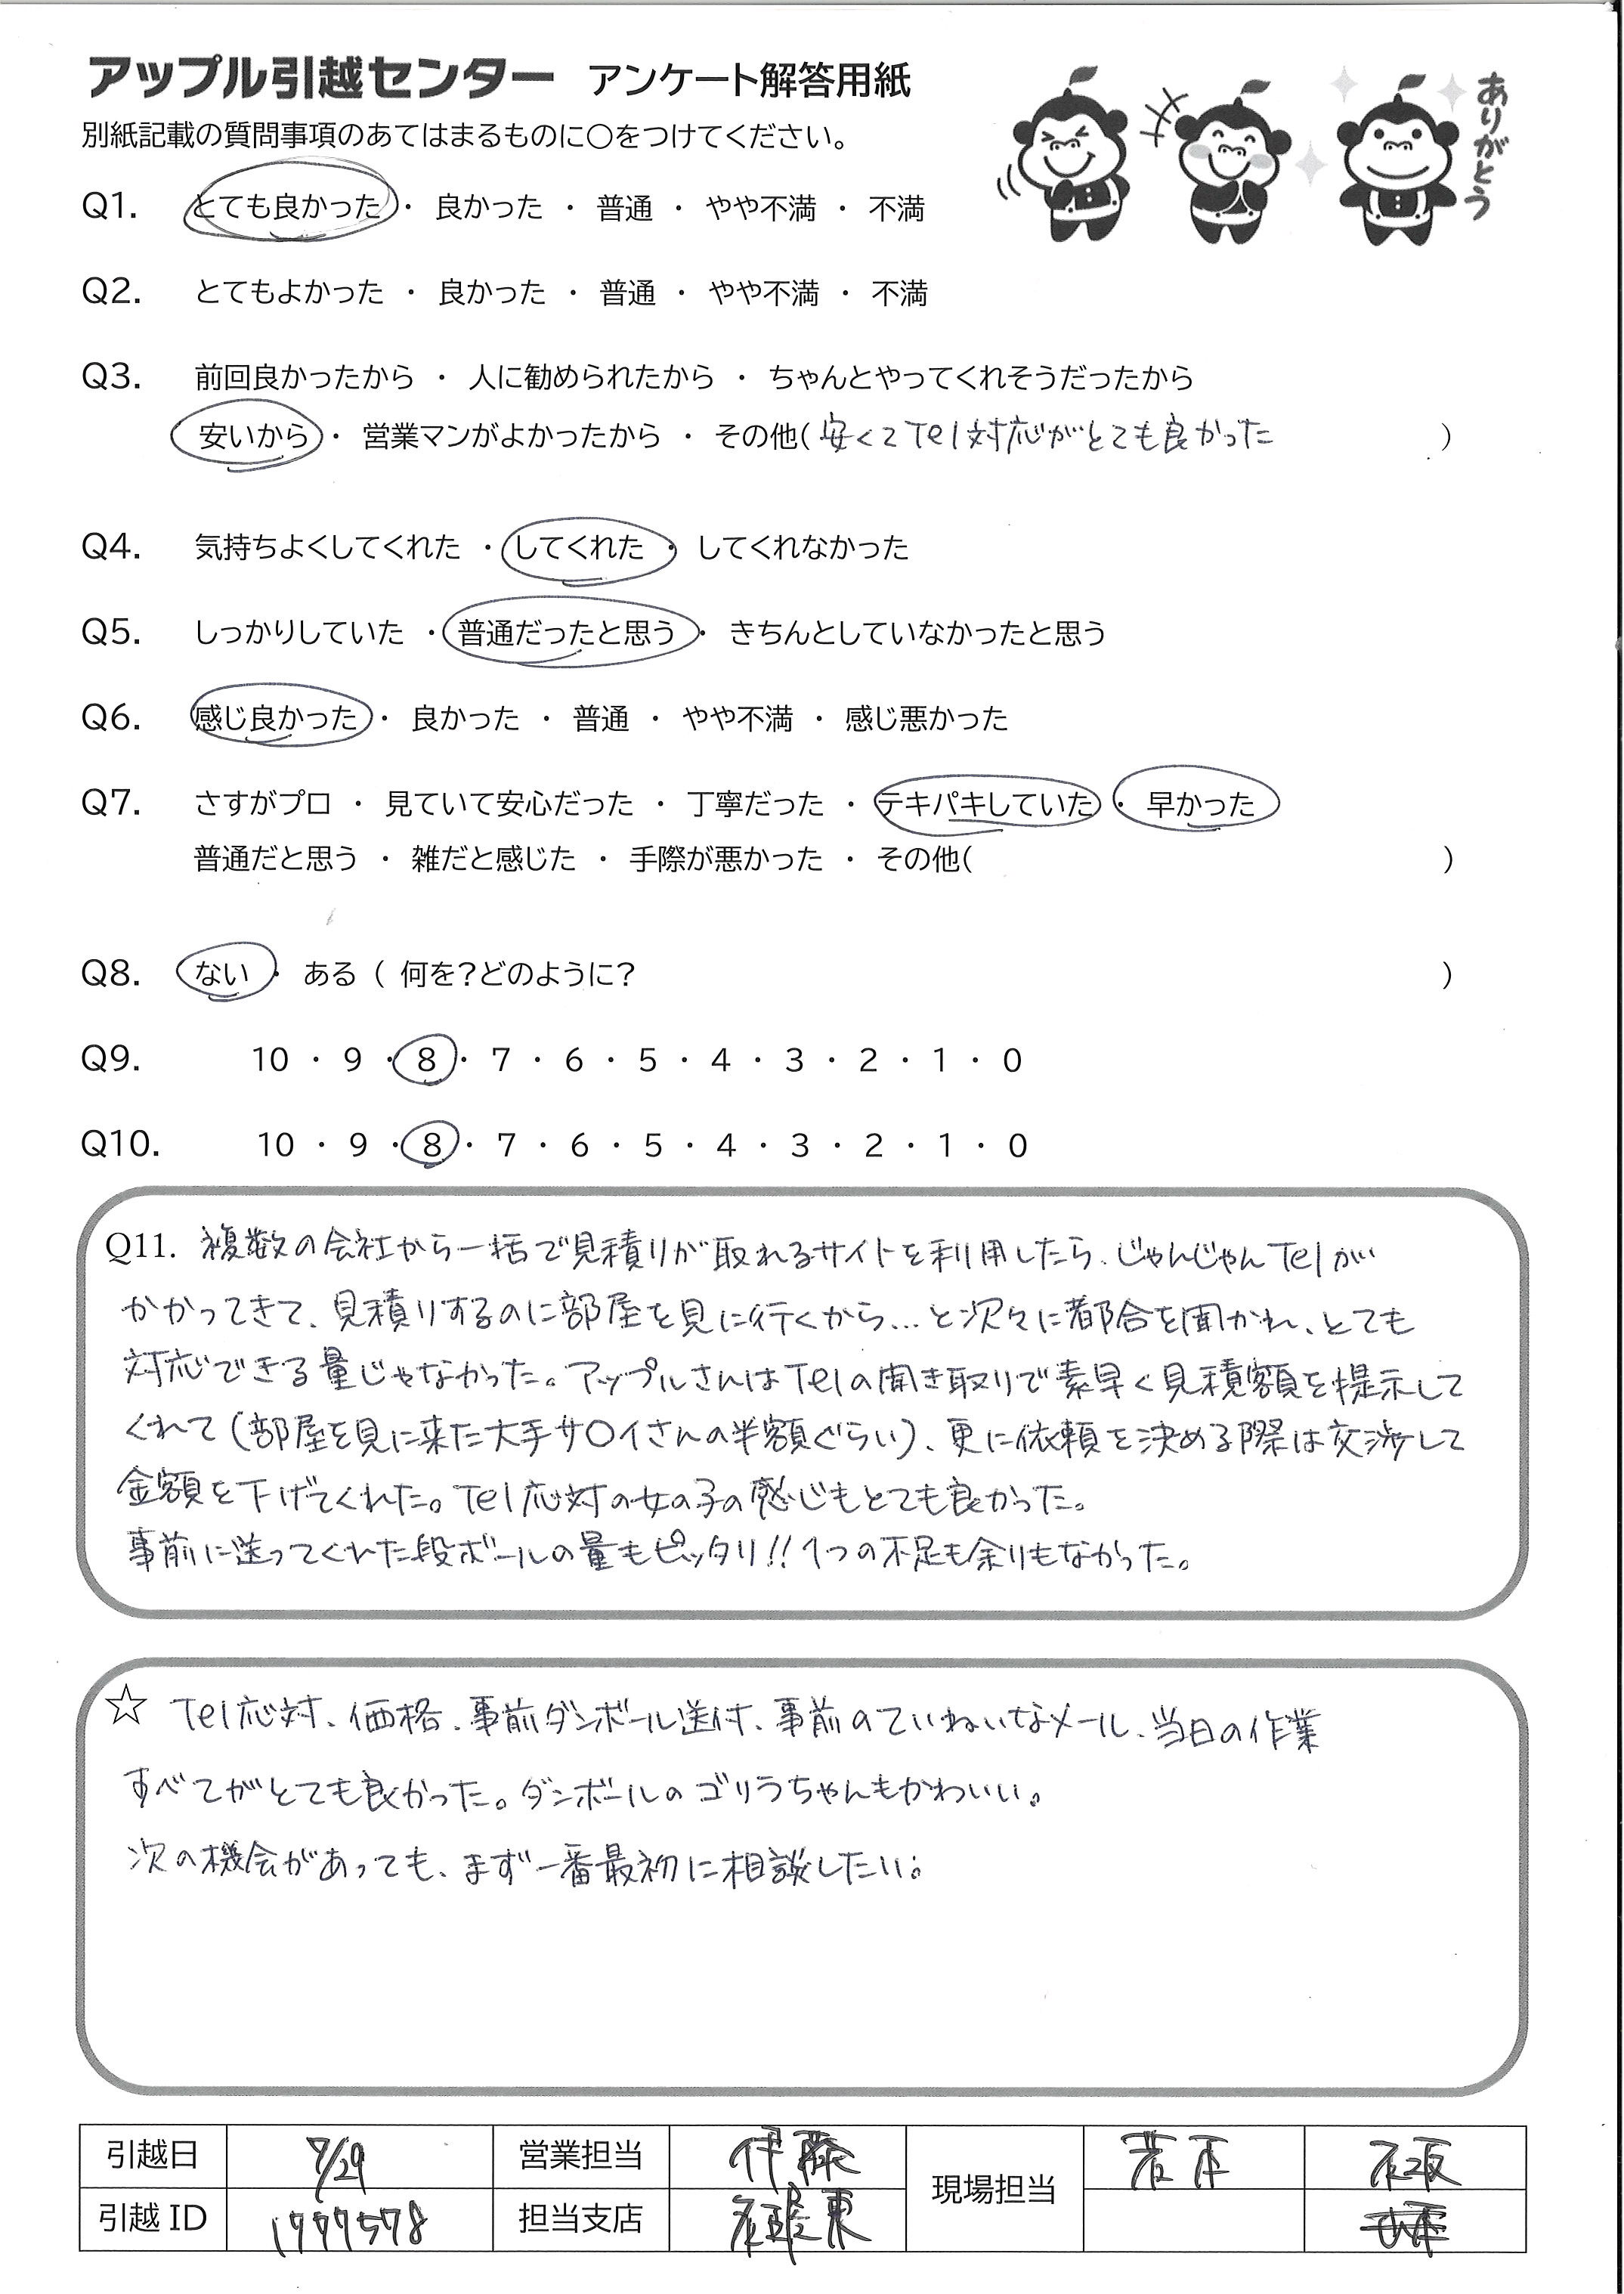 アップル引越センター アンケート解答用紙
ありがとう
別紙記載の質問事項のあてはまるものに〇をつけてください。
Q1. とても良かった ・ 良かった ・ 普通 ・ やや不満 ・ 不満
Q2. とてもよかった ・ 良かった ・ 普通 ・ やや不満 ・ 不満
Q3. 前回良かったから ・ 人に勧められたから ・ ちゃんとやってくれそうだったから
安いから ・ 営業マンがよかったから ・ その他( 安くてTel対応がとても良かった )
Q4. 気持ちよくしてくれた ・ してくれた ・ してくれなかった
Q5. しっかりしていた ・ 普通だったと思う ・ きちんとしていなかったと思う
Q6. 感じ良かった ・ 良かった ・ 普通 ・ やや不満 ・ 感じ悪かった
Q7. さすがプロ ・ 見ていて安心だった ・ 丁寧だった ・ テキパキしていた ・ 早かった
普通だと思う ・ 雑だと感じた ・ 手際が悪かった ・ その他( )
Q8. ない ・ ある ( 何を?どのように? )
Q9. 10 ・ 9 ・ 8 ・ 7 ・ 6 ・ 5 ・ 4 ・ 3 ・ 2 ・ 1 ・ 0
Q10. 10 ・ 9 ・ 8 ・ 7 ・ 6 ・ 5 ・ 4 ・ 3 ・ 2 ・ 1 ・ 0
Q11. 複数の会社から一括で見積りが取れるサイトを利用したら、じゃんじゃんTelが
かかってきて、見積りするのに部屋を見に行くから…と次々に都合を聞かれ、とても
対応できる量じゃなかった。アップルさんはTelの聞き取りで素早く見積額を提示して
くれて(部屋を見に来た大手サ〇イさんの半額ぐらい)、更に依頼を決める際は交渉して
金額を下げてくれた。Tel応対の女の子の感じもとても良かった。
事前に送ってくれた段ボールの量もピッタリ!!1つの不足も余りもなかった。
☆ Tel応対、価格、事前ダンボール送付、事前のていねいなメール、当日の作業
すべてがとても良かった。ダンボールのゴリラちゃんもかわいい。
次の機会があっても、まず一番最初に相談したい。
引越日 7/29 営業担当 伊藤 現場担当
引越ID 1777578 担当支店